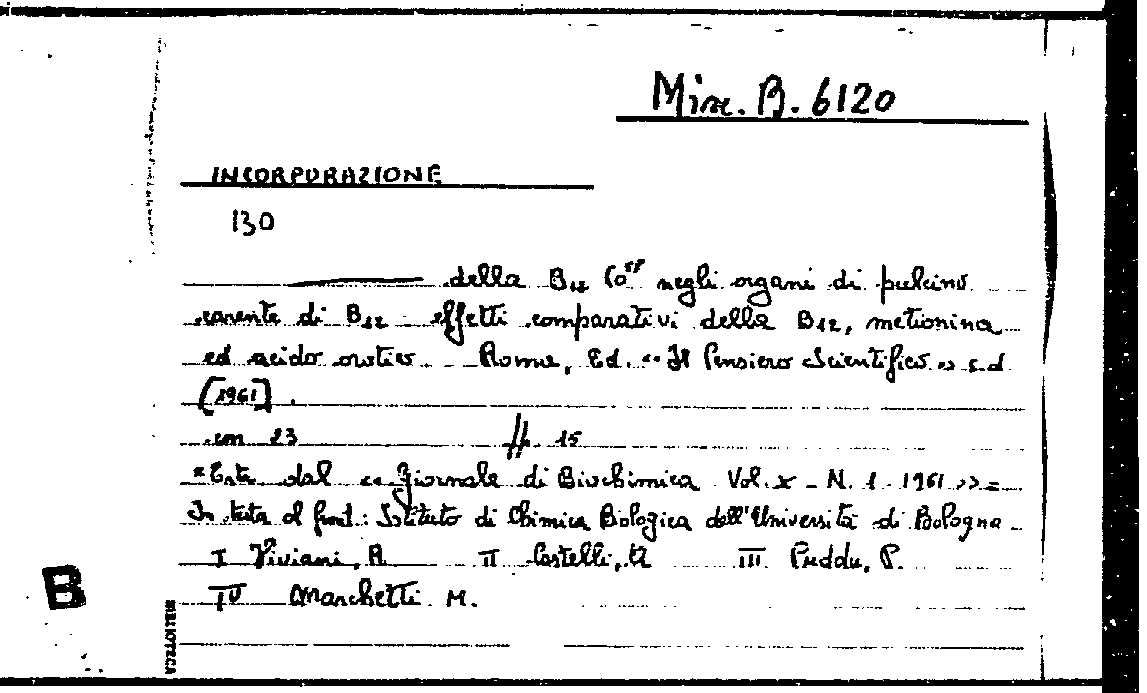 Misc. B. 6120
INCORPORAZIONE
130
della B12 Co58 negli organi di pulcino
carente di B12 effetti comparativi della B12, metionina
ed acido orotico - Roma, Ed. "Il Pensiero Scientifico" s.d
[1961].
cm 23 ff. 15
=Estr. dal «Giornale di Biochimica Vol. X - N. 1 1961»=
In testa al front: Istituto di Chimica Biologica dell'Università di Bologna -
I Viviani, R II Castelli, A III Puddu, P.
IV Marchetti M.
B
BIBLIOTECA